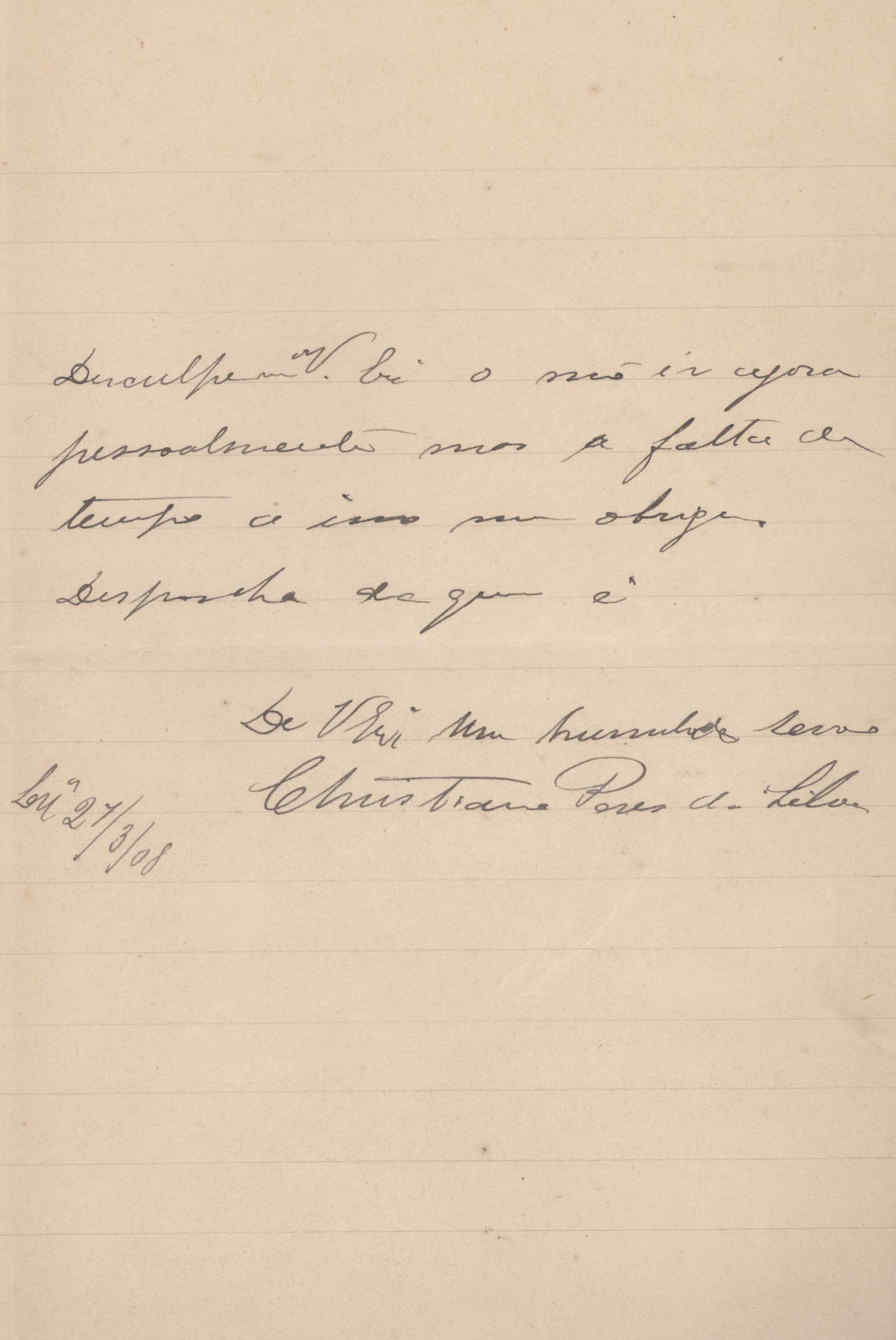 Desculpe-me V. Exª o não ir agora
pessoalmente mas a falta de
tempo a isso me obriga.
Despacha de quem é
De V Exª Um humilde servo
Christiano Peres da Silva
27/3/08